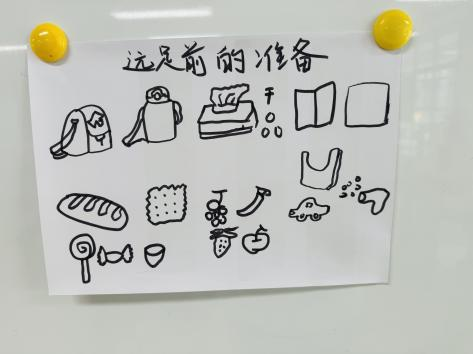 远足前的准备
干